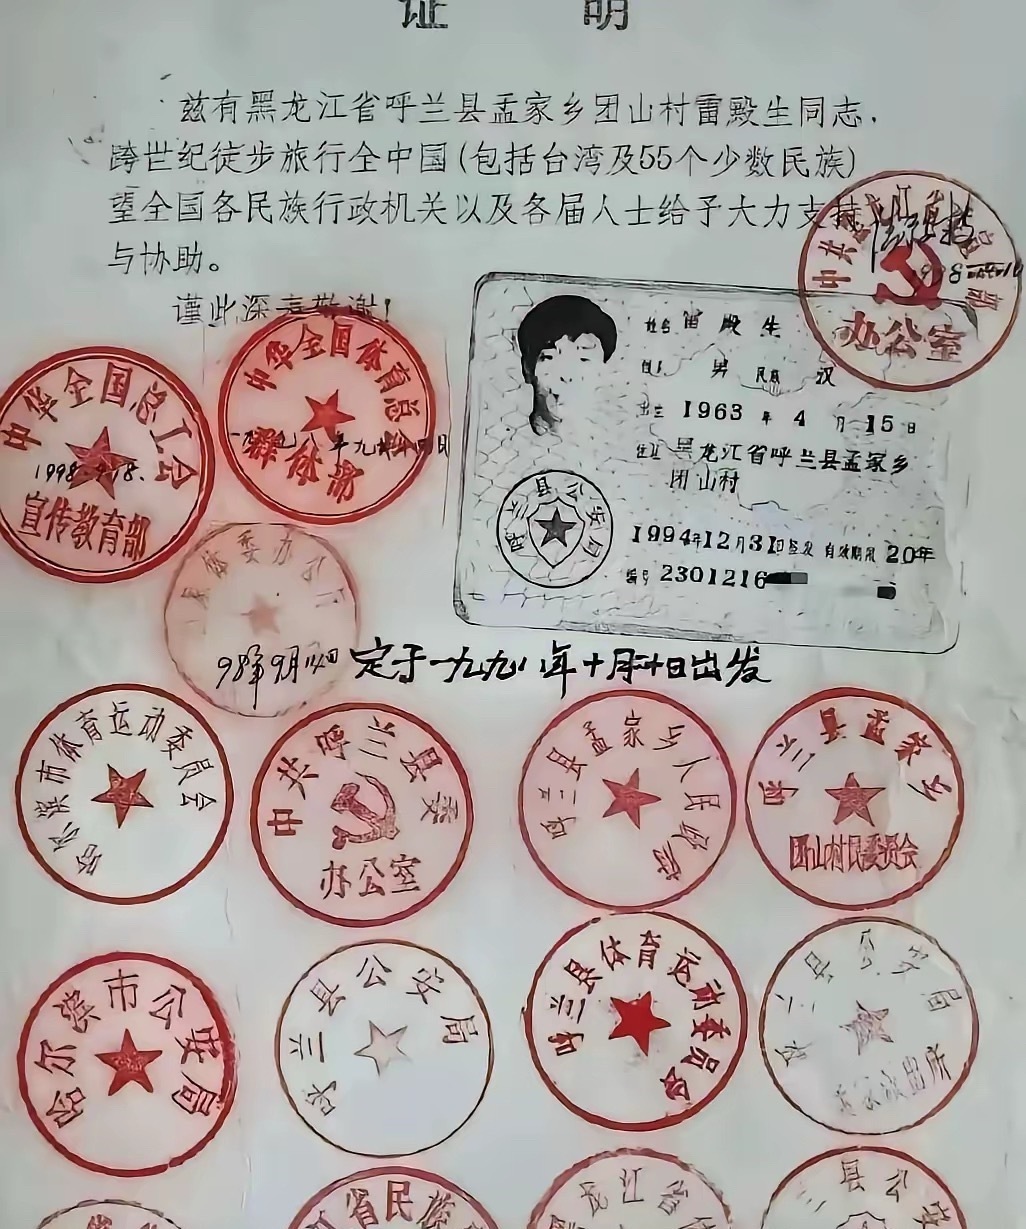 证 明
兹有黑龙江省呼兰县孟家乡团山村雷殿生同志.
跨世纪徒步旅行全中国(包括台湾及55个少数民族)
望全国各民族行政机关以及各届人士给予大力支持
与协助。
谨此深表敬谢!
中共
办公室
姓名 雷殿生
男 民族 汉
出生 1963年4月15日
住址 黑龙江省呼兰县孟家乡
团山村
县公安局
1994年12月31日签发 有效期限 20年
编号 2301216
中华全国总工会
宣传教育部
中华全国体育总
群体部
体委办公厅
98年9月
定于一九九八年十月二十日出发
哈尔滨市体育运动委员会
中共呼兰县委
办公室
呼兰县孟家乡人民政府
呼兰县孟家乡
团山村民委员会
哈尔滨市公安局
呼兰县公安局
呼兰县体育运动委员会
呼兰县公安局
孟家派出所
省民族
龙江省
县公安